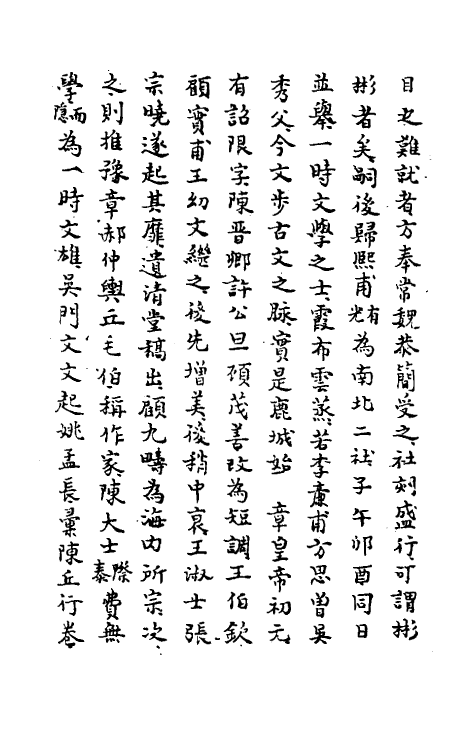 目尤難就者方奉常魏恭簡受之社刻盛行可謂彬
彬者矣嗣後歸熙甫有光為南北二社子午卯酉同日
並舉一時文學之士霞布雲蒸若李彥甫方思曾吳
秀父今文步古文之脉實是鹿城始　章皇帝初元
有詔限字陳晉卿許公旦顧茂善改為短調王伯欽
顧實甫王幼文繼之後先增美後稍中衰王淑士張
宗曉遂起其靡遺清堂稿出顧九疇為海内所宗次
之則推豫章郝仲輿丘毛伯稱作家陳大士際泰費無
學而隱為一時文雄吳門文文起姚孟長彙陳丘行卷